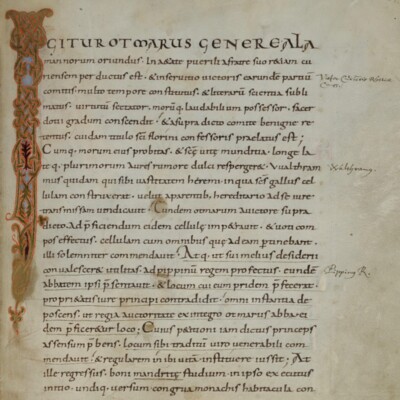 IGITUR OTMARUS GENERE ALA
mannorum oriundus. In aetate puerili a fratre suo retiam cu
riensem perductus est. & in servitio victoris earundem partiũ
comitis multo tempore constitutus, & literarũ scientia subli
matus. virtutũ sectator, morũq; laudabilium possessor, sacer
dotii gradum conscendit. & a supra dicto comite benigne re
tentus, cuidam titulo sc̃i florini confessoris praelatus est;
Cumq; morum eius probitas. & sc̃ę vitę munditia. longe la
teq; plurimorum aures rumore dulci respergeret. Vualthram
mus quidam qui sibi vastitatem heremi. in qua sc̃s gallus cel
lulam construxerat. velut a parentib; hereditario ad se iure
transmissam vindicavit. Eundem otmarum auctore supra
dicto ad p̃ficiendum eidem cellulę imp&ravit. & voti com
pos effectus. cellulam cum omnibus quę ad eam p&inebant.
illi solemniter commendavit. Atq; ut sui melius desiderii
convalescer& utilitas. ad pippinũ regem profectus. eundẽ
abbatem ipsi p̃sentavit. & locum cui eum pridem p̃fecerat.
propri&atis iure principi contradidit. omni instantia de
poscens. ut regia auctoritate ex integro otmarus abba ei
dem p̃ficer&ur loco; Cuius p&itioni iam dictus princeps
assensum p̃bens. locum sibi traditũ viro venerabili com
mendavit. & regularem inibi vitã instituere iussit; At
ille regressus. boni mandritę studium in ipso exercitus
initio. undiq; versum congrua monachis habitacula con